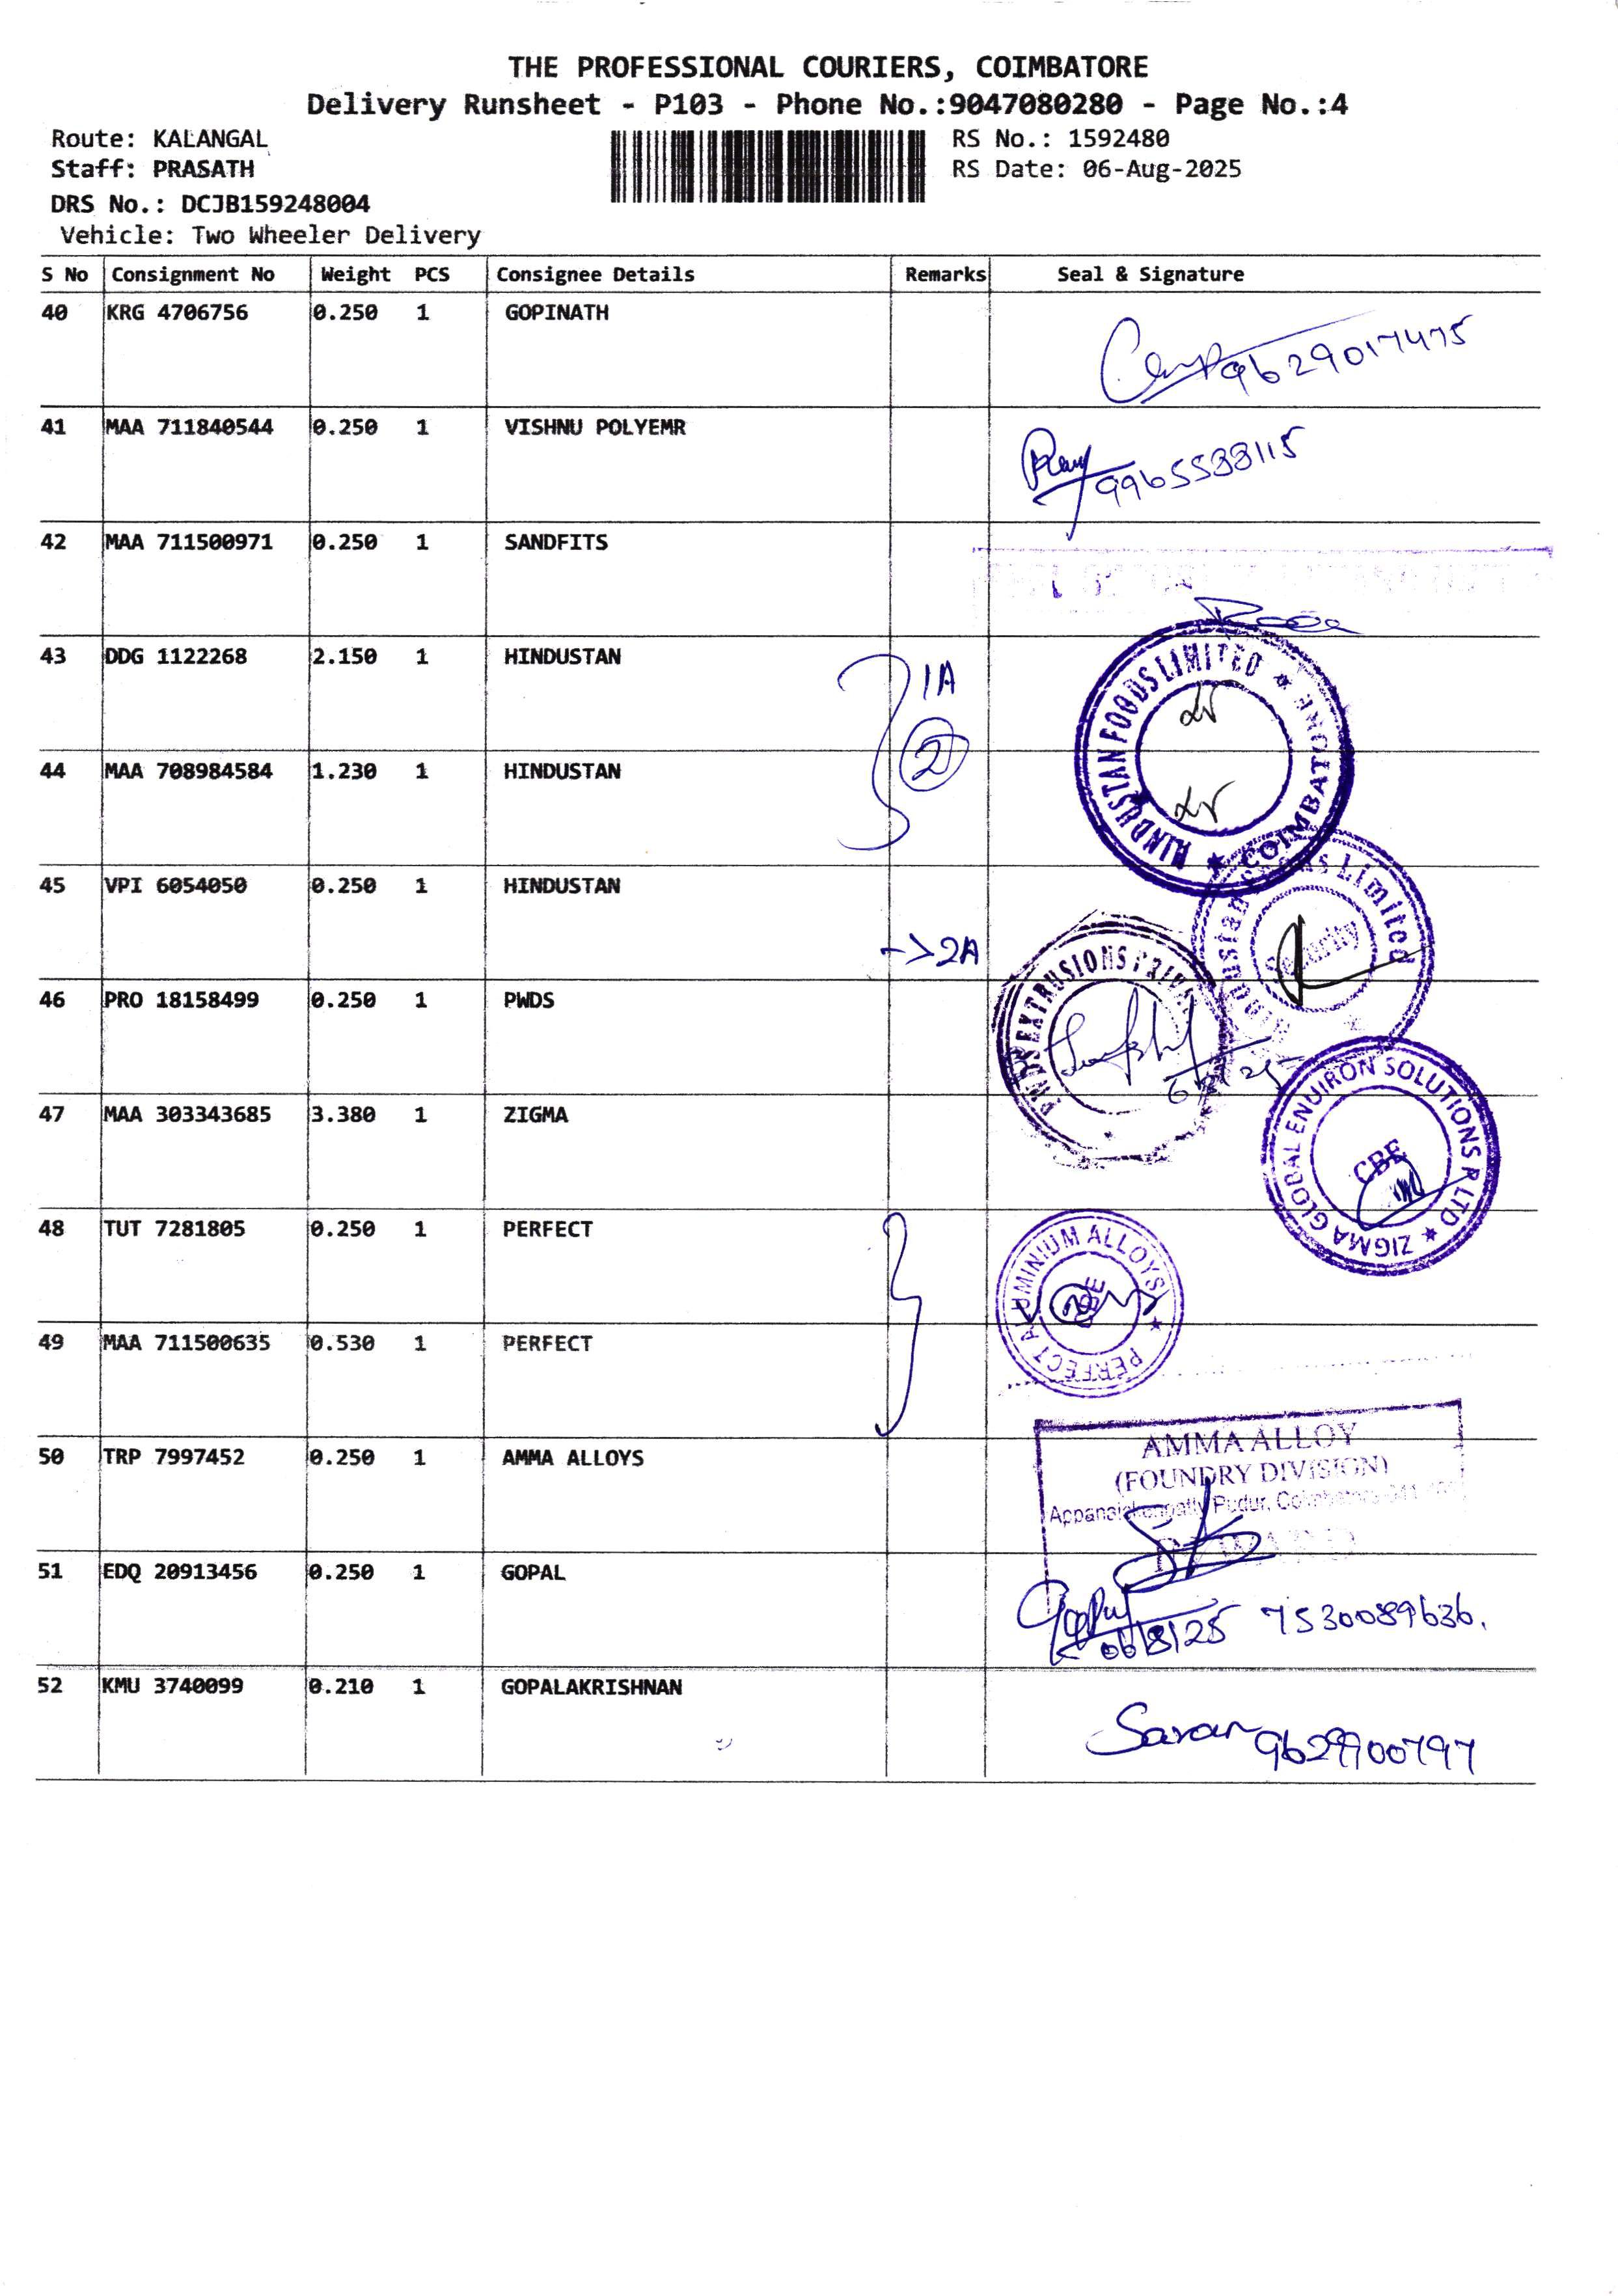 THE PROFESSIONAL COURIERS, COIMBATORE
Delivery Runsheet - P103 - Phone No.:9047080280 - Page No.:4
Route: KALANGAL
RS No.: 1592480
Staff: PRASATH
RS Date: 06-Aug-2025
DRS No.: DCJB159248004
Vehicle: Two Wheeler Delivery
S No Consignment No Weight PCS Consignee Details Remarks Seal & Signature
40 KRG 4706756 0.250 1 GOPINATH
9629017475
41 MAA 711840544 0.250 1 VISHNU POLYEMR
9965533115
42 MAA 711500971 0.250 1 SANDFITS
43 DDG 1122268 2.150 1 HINDUSTAN
1A
HINDUSTAN FOODS LIMITED ★ COIMBATORE ★
44 MAA 708984584 1.230 1 HINDUSTAN
2
45 VPI 6054050 0.250 1 HINDUSTAN
->2A
Hindustan Foods Limited
Security
46 PRO 18158499 0.250 1 PWDS
PWDS EXTRUSIONS PRIVA
6/8/25
47 MAA 303343685 3.380 1 ZIGMA
ZIGMA GLOBAL ENUIRON SOLUTIONS P LTD ★
CBE
48 TUT 7281805 0.250 1 PERFECT
PERFECT ALUMINIUM ALLOYS ★
CBE
49 MAA 711500635 0.530 1 PERFECT
50 TRP 7997452 0.250 1 AMMA ALLOYS
AMMA ALLOY
(FOUNDRY DIVISION)
Pudur,
51 EDQ 20913456 0.250 1 GOPAL
06/8/25 7530089636.
52 KMU 3740099 0.210 1 GOPALAKRISHNAN
Savan 9629900797